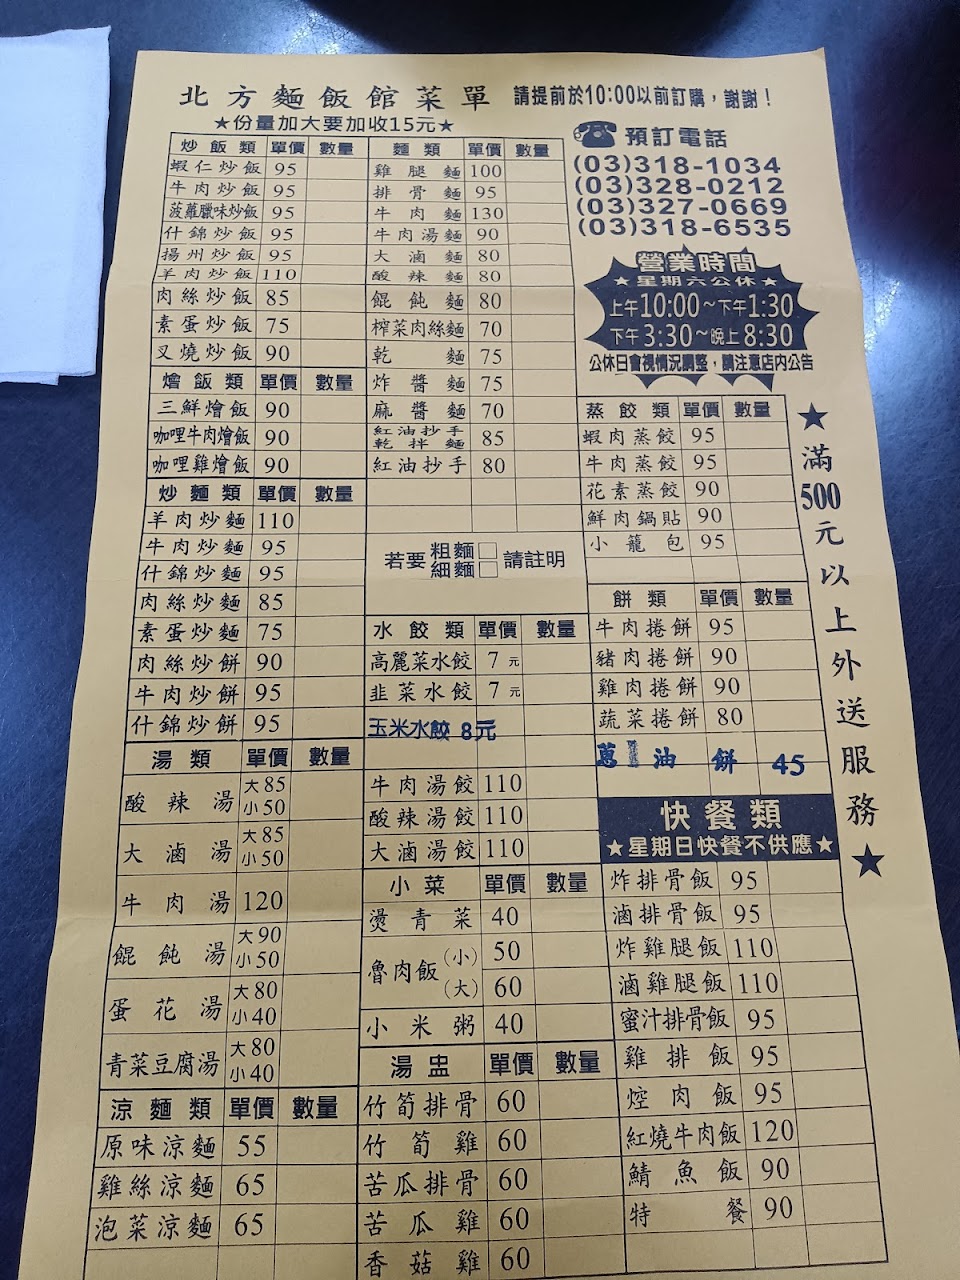 北方麵飯館菜單 請提前於10:00以前訂購，謝謝！
★份量加大要加收15元★
炒飯類 單價 數量
蝦仁炒飯 95
牛肉炒飯 95
菠蘿臘味炒飯 95
什錦炒飯 95
揚州炒飯 95
羊肉炒飯 110
肉絲炒飯 85
素蛋炒飯 75
叉燒炒飯 90
燴飯類 單價 數量
三鮮燴飯 90
咖哩牛肉燴飯 90
咖哩雞燴飯 90
炒麵類 單價 數量
羊肉炒麵 110
牛肉炒麵 95
什錦炒麵 95
肉絲炒麵 85
素蛋炒麵 75
肉絲炒餅 90
牛肉炒餅 95
什錦炒餅 95
湯類 單價 數量
酸辣湯 大85
小50
大滷湯 大85
小50
牛肉湯 120
餛飩湯 大90
小50
蛋花湯 大80
小40
青菜豆腐湯 大80
小40
涼麵類 單價 數量
原味涼麵 55
雞絲涼麵 65
泡菜涼麵 65
麵類 單價 數量
雞腿麵 100
排骨麵 95
牛肉麵 130
牛肉湯麵 90
大滷麵 80
酸辣麵 80
餛飩麵 80
榨菜肉絲麵 70
乾麵 75
炸醬麵 75
麻醬麵 70
紅油抄手
乾拌麵 85
紅油抄手 80
若要 粗麵□ 請註明
細麵□
水餃類 單價 數量
高麗菜水餃 7元
韭菜水餃 7元
玉米水餃 8元
牛肉湯餃 110
酸辣湯餃 110
大滷湯餃 110
小菜 單價 數量
燙青菜 40
魯肉飯 (小) 50
(大) 60
小米粥 40
湯盅 單價 數量
竹筍排骨 60
竹筍雞 60
苦瓜排骨 60
苦瓜雞 60
香菇雞 60
☎預訂電話
(03)318-1034
(03)328-0212
(03)327-0669
(03)318-6535
營業時間
★星期六公休★
上午10:00～下午1:30
下午3:30～晚上8:30
公休日會視情況調整，請注意店內公告
蒸餃類 單價 數量
蝦肉蒸餃 95
牛肉蒸餃 95
花素蒸餃 90
鮮肉鍋貼 90
小籠包 95
餅類 單價 數量
牛肉捲餅 95
豬肉捲餅 90
雞肉捲餅 90
蔬菜捲餅 80
蔥油餅 45
快餐類
★星期日快餐不供應★
炸排骨飯 95
滷排骨飯 95
炸雞腿飯 110
滷雞腿飯 110
蜜汁排骨飯 95
雞排飯 95
焢肉飯 95
紅燒牛肉飯 120
鯖魚飯 90
特餐 90
★滿500元以上外送服務★